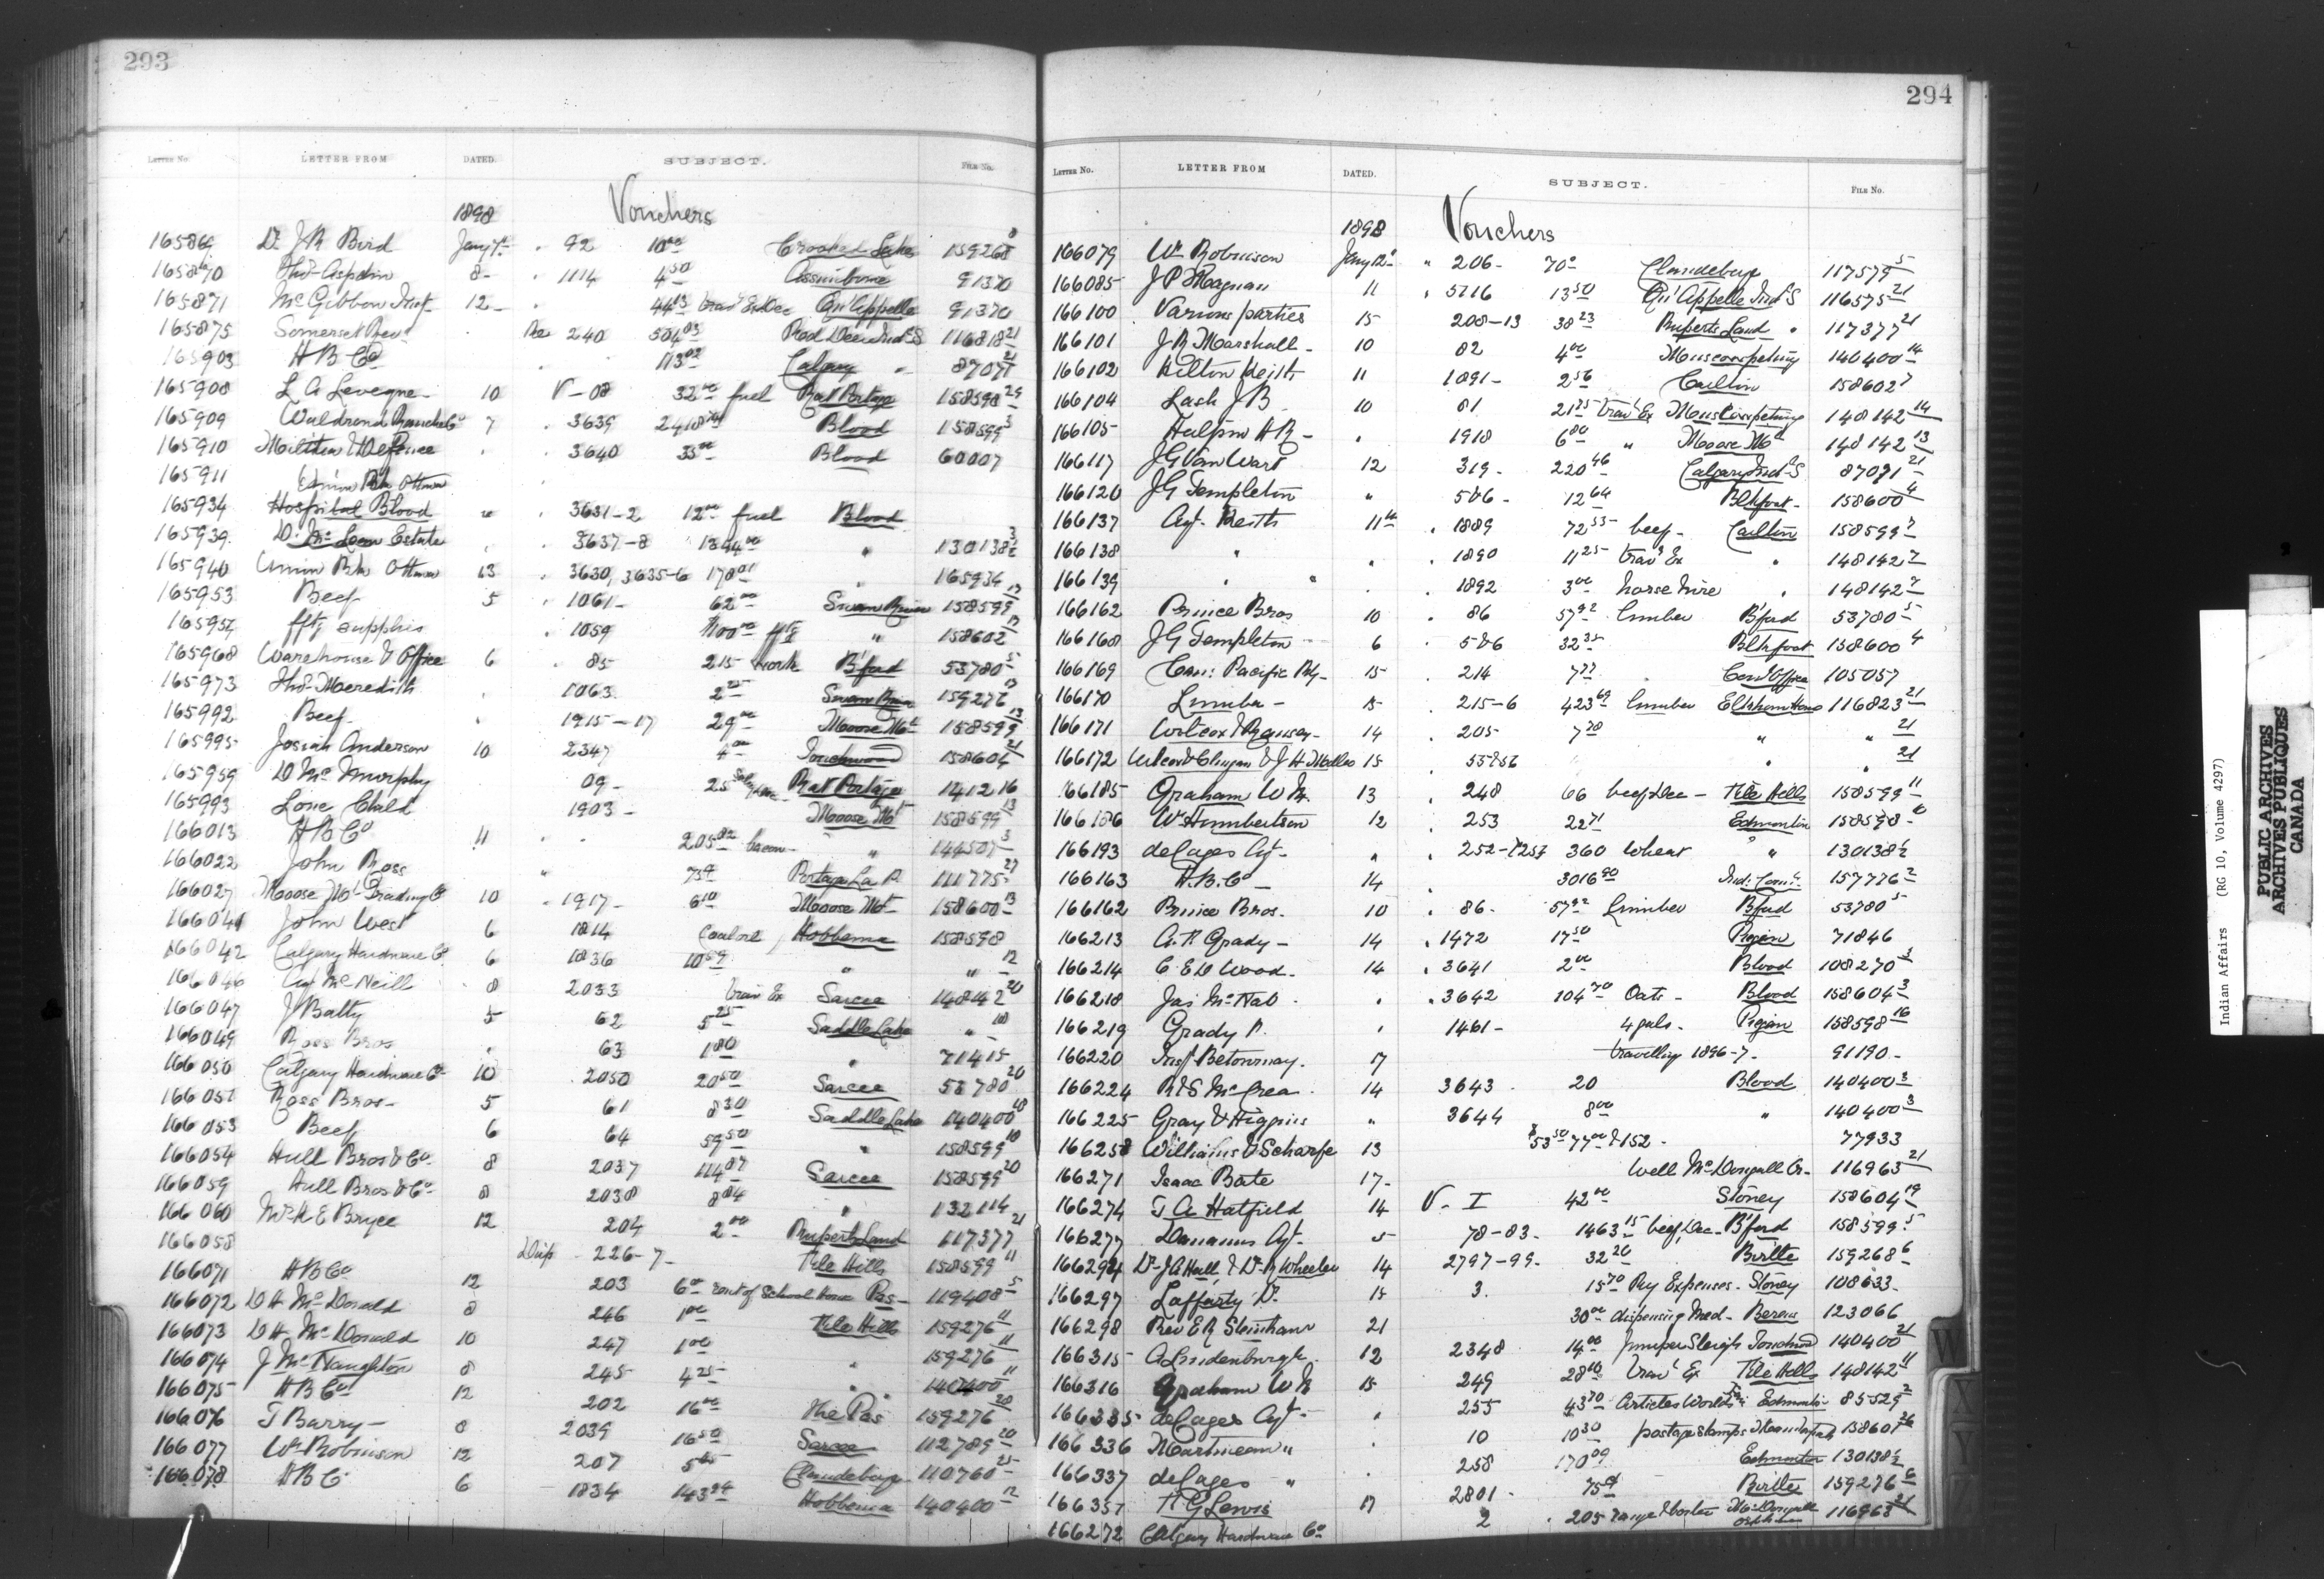 293
LETTER No. LETTER FROM DATED. SUBJECT. FILE No.
1898 Vouchers
165864 Dr J R Bird Jany 7 " 92 10.00 Crooked Lakes 159268 8
165870 Thos Aspdin 8 - " 1114 4.50 Assiniboine 91370
165871 McGibbon Insp 12 - " 44.45 trav Ex Dec Qu'Appelle 91370
165875 Somerset Rev " Dec 240 504.03 Red Deer Ind S 116818 21
165903 H B Co " 113.02 Calgary " 87071 21
165908 L A Levegne - 10 V - 08 32.00 fuel Rat Portage 158598 24
165909 Waldrond Ranche Co 7 " 3639 Blood 158599 3
165910 Militia & Defence " " 3640 35.00 Blood 60007
165911 Union Bk Ottawa
165934 Hospital Blood " " 3631-2 12.00 fuel Blood
165939 D. McLean Estate " " 3637-8 1394.00 " 130138 3/2
165940 Union Bk Ottawa 13 " 3630, 3635-6 178.01 " 165934
165953 Beef 5 " 1061 - 62.00 Swan River 158599 17
165954 fftg supplies " 1059 1100.00 fftg " 158602 17
165968 Warehouse & Office 6 " 85 215 work B'ford 53780 5
165973 Thos Meredith " 1063 2.25 Swan River 159276 17
165992 Beef " 1915-17 29.00 Moose Mt 158599 13
165995 Josiah Anderson 10 2347 4.00 Touchwood 158604 21
165959 D McMurphy 09 - 25 Rat Portage 141216
165993 Lone Child 1903 - Moose Mt 158599 13
166013 H B Co 11 " " 205.82 bacon - " 144507 3
166022 John Ross " 75¢ Portage La P. 111775 27
166027 Moose Mt Trading Co 10 " 1917 - 6.10 Moose Mt 158600 13
166041 John West 6 1814 Coal oil Hobbema 158598
166042 Calgary Hardware Co 6 1836 10.59 " " 12
166046 Agt McNeill 8 2033 trav Ex Sarcee 148142 20
166047 J Batty 5 62 5.25 Saddle Lake " 18
166049 Ross Bros " 63 1.80 " 71415
166050 Calgary Hardware Co 10 2050 20.50 Sarcee 53780 20
166052 Ross Bros - 5 61 8.30 Saddle Lake 140400 18
166053 Beef 6 64 59.50 " 158599 18
166054 Hull Bros & Co 8 2037 114.87 Sarcee 158599 20
166059 Hull Bros & Co 8 2038 8.04 " 132114
166060 Mrs K E Bryce 12 204 2.00 Ruperts Land 117377 21
166058 Dup 226-7 - File Hills 158599 11
166071 H B Co 12 203 6.00 rent of School house Pas - 119408 5
166072 D H McDonald 8 246 1.00 File Hills 159276 11
166073 D H McDonald 10 247 1.00 " 159276 11
166074 J McNaughton 8 245 4.25 " 140400 11
166075 H B Co 12 202 16.00 The Pas 159276 28
166076 T Barry - 8 2039 16.50 Sarcee 112789 20
166077 Wm Robinson 12 207 Clandeboye 110760 25
166078 H B C 6 1834 143.24 Hobbema 140400 12
294
LETTER No. LETTER FROM DATED. SUBJECT. FILE No.
1898 Vouchers
166079 Wm Robinson Jany 12 " 206 - 70¢ Clandeboye 117579 5
166085 J P Magnan 11 " 5716 13.50 Qu'Appelle Ind S 116575 21
166100 Various parties 15 208-13 38.23 Ruperts Land " 117377 21
166101 J R Marshall - 10 82 4.00 Muscowpetung 140400 14
166102 Hilton Keith 11 1891 - 2.56 Carlton 158602 7
166104 Lash J B 10 81 21.75 trav Ex Muscowpetung 148142 14
166105 Halpin H R - " 1918 6.80 " Moose Mt 148142 13
166117 J G Van Wart 12 319 - 220.46 Calgary Ind S 87071 21
166120 J G Templeton " 586 - 12.64 Blkfoot - 158600 4
166137 Agt. Keith 11th " 1889 72.53 beef - Carlton 158599 7
166138 " " " 1890 11.25 trav Ex " 148142 7
166139 " " " 1892 3.00 horse hire " 148142 7
166162 Prince Bros 10 " 86 57.92 lumber B'ford 53780 5
166168 J G Templeton 6 " 586 32.35 Blkfoot 158600 4
166169 Can: Pacific Rly - 15 " 214 Com Office 105057
166170 Lumber - 15 " 215-6 423.69 lumber Elkhorn Home 116823 21
166171 Wilcox & Ramsay - 14 " 205 " " 21
166172 15 " " " 21
166185 Graham W M. 13 " 248 66 beef Dec - File Hills 158599 11
166186 W S Humbertson 12 " 253 22.71 Edmonton 158598
166193 de Cazes Agt - " " 252-7 360 Wheat " 130138 1/2
166163 H. B. Co - 14 " 3016.90 Ind: Com 157776 2
166162 Prince Bros. 10 " 86 - 57.92 Lumber B'ford 53780 5
166213 A. P. Grady - 14 " 1472 17.50 Piegan 71846
166214 C E D Wood - 14 " 3641 2.00 Blood 108270 3
166218 Jas McNab - " " 3642 104.70 Oats - Blood 158604 3
166219 Grady P. " 1461 - 4 gals - Piegan 158598 16
166220 Insp Betournay. 17 travelling 1896-7 - 91190 -
166224 R & S McCrea 14 3643 - 20 Blood 140400 3
166225 Gray & Higgins " 3644 8.00 " 140400 3
166258 Williams & Scharfe 13 $53.50 77.00 & 152 - 77933
166271 Isaac Bate 17 - Well McDougall Or - 116963 21
166274 T A Hatfield 14 V - I 42.00 Stoney 158604 19
166277 Daunais Agt - 5 78-83 - 1463.15 beef, Dec - B'ford 158599 5
166294 Dr J A Hall & Dr R Wheeler 14 2797-99 - 32.20 Birtle 159268 6
166297 Lafferty Dr 15 3. 15.70 Pay Expenses - Stoney 108633 -
166298 Rev E R Steinhauer 21 30.00 dispensing Med - Berens 123066
166315 A Lindenburgh 12 2348 14.00 Jumper Sleighs Touchwood 140400 21
166316 Graham W M 15 249 28.10 trav Ex File Hills 148142 11
166335 de Cazes Agt - " 255 43.70 Articles Worlds Fair Edmonton - 85529 2
166336 Martineau " " 10 10.30 postage stamps 158607 26
166337 de Cazes " " 258 170.09 Edmonton 130138 1/2
166357 T G Lewis 17 2801 - 75¢ Birtle 159276 6
166272 Calgary Hardware Co 2 " 205 range & boiler McDougall Orphanage 116963 21
W
X
Y
Indian Affairs (RG 10, Volume 4297)
PUBLIC ARCHIVES
ARCHIVES PUBLIQUES
CANADA